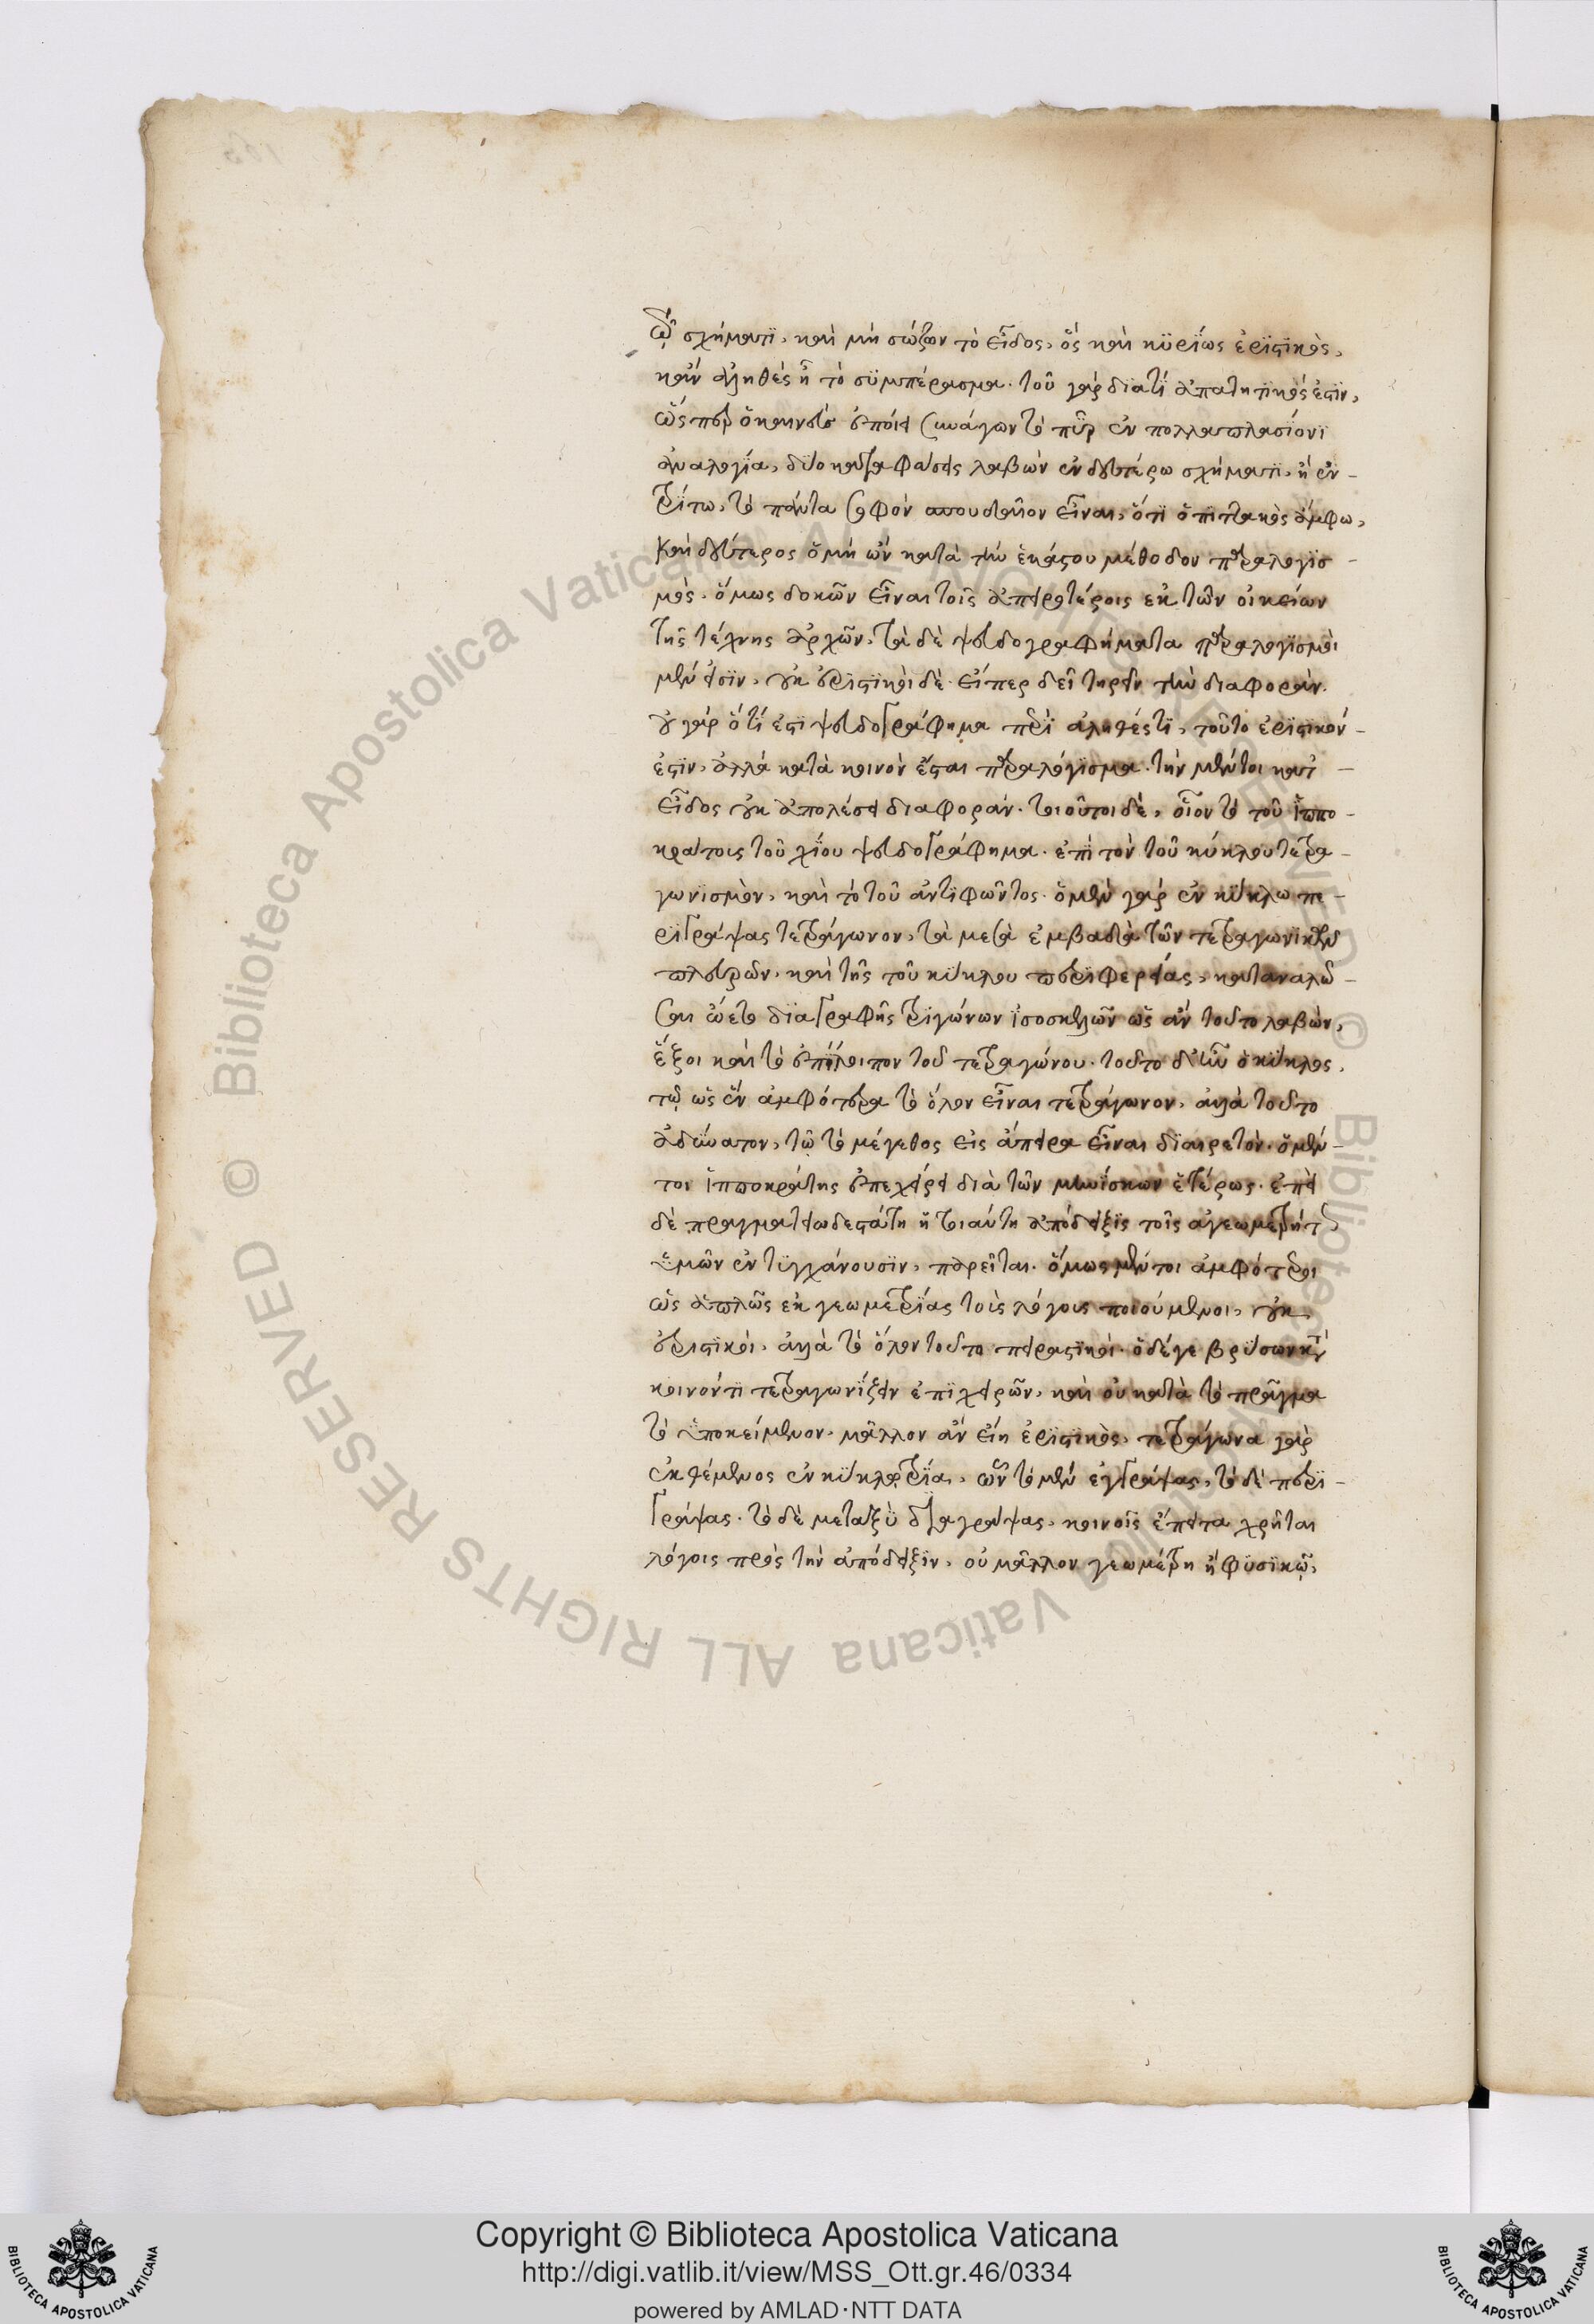 ῳ σχήματι, καὶ μὴ σώζων τὸ εἶδος, ὃς καὶ κυρίως ἐριστικὸς,
κἂν ἀληθὲς ᾖ τὸ συμπέρασμα. τοῦ γὰρ διατί ἀπατητικός ἐστιν,
ὥσπερ ὁ καινεὺς ἐποίει συνάγων τὸ πῦρ ἐν πολλαπλασίονι
ἀναλογία, δύο καταφάσεις λαβὼν ἐν δευτέρω σχήματι, ἢ ἐν
τρίτω, τὸ πάντα σοφὸν σπουδαῖον εἶναι, ὅτι ὁ πιττακὸς ἄμφω,
καὶ δεύτερος ὁ μὴ ὢν κατὰ τὴν ἑκάστου μέθοδον παραλογισ
μὸς. ὅμως δοκῶν εἶναι τοῖς ἀπειροτέροις ἐκ τῶν οἰκείων
τῆς τέχνης ἀρχῶν. τὰ δὲ ψευδογραφήματα παραλογισμοὶ
μὲν εἰσὶν, οὐκ ἐριστικοὶ δὲ. εἴπερ δεῖ τηρεῖν τὴν διαφορὰν.
οὐ γὰρ ὅτι ἐστὶ ψευδογράφημα περὶ ἀληθές τι, τοῦτο ἐριστικόν
ἐστιν, ἀλλὰ κατὰ κοινὸν ἔσται παραλόγισμα. τὴν μέντοι κατ
εἶδος οὐκ ἀπολέσει διαφοράν. τοιοῦτοι δὲ, οἷον τὸ τοῦ ἱππο
κράτοις τοῦ χΐου ψευδογράφημα. ἐπὶ τὸν τοῦ κύκλου τετρα
γωνισμὸν, καὶ τὸ τοῦ ἀντιφῶντος. ὁ μὲν γὰρ ἐν κύκλω πε
ριγράψας τετράγωνον, τὰ μετὰ ἐμβαδὰ τῶν τετραγωνικῶν
πλευρῶν, καὶ τῆς τοῦ κύκλου περιφερείας, καταναλῶ
σαι ᾤετο διαγραφῆς τριγώνων ἰσοσκελῶν ὡς ἂν τοῦτο λαβὼν,
ἕξοι καὶ τὸ ἐπίλοιπον τοῦ τετραγώνου. τοῦτο δ' ἦν ὁ κύκλος,
τῷ ὡς ἓν ἀμφότερα τὸ ὅλον εἶναι τετράγωνον, ἀλλὰ τοῦτο
ἀδύνατον, τῷ τὸ μέγεθος εἰς ἄπειρα εἶναι διαιρετὸν. ὁ μέν
τοι ἱπποκράτης ἐπεχείρει διὰ τῶν μηνίσκων ἑτέρως. ἐπεὶ
δὲ πραγματειωδεστάτη ἡ τοιαύτη ἀπόδειξις τοῖς ἀγεωμετρήτ
ἡμῶν ἐντυγχάνουσιν, παρεῖται. ὅμως μέντοι ἀμφότεροι
ὡς ἁπλῶς ἐκ γεωμετρίας τοὶς λόγους ποιούμενοι, οὐκ
ἐριστικοὶ. ἀλλὰ τὸ ὅλον τοῦτο πειραστικοὶ. ὁ δέ γε βρύσων κατὰ
κοινόν τι τετραγωνίζειν ἐπιχειρῶν, καὶ οὐ κατὰ τὸ πρᾶγμα
τὸ ὑποκείμενον. μᾶλλον ἂν εἴη ἐριστικὸς, τετράγωνα γὰρ
ἐκθέμενος ἐν κύκλω τρία, ὧν τὸ μὲν ἐγγράψας, τὸ δὲ περι
γράψας. τὸ δὲ μεταξὺ διαγράψας, κοινοῖς ἔπειτα χρῆται
λόγοις πρὸς τὴν ἀπόδειξιν. οὐ μᾶλλον γεωμέτρη ἢ φυσικῷ,
Copyright © Biblioteca Apostolica Vaticana
http://digi.vatlib.it/view/MSS_Ott.gr.46/0334
powered by AMLAD·NTT DATA
BIBLIOTECA APOSTOLICA VATICANA
BIBLIOTECA APOSTOLICA VATICANA
© Biblioteca Apostolica Vaticana ALL RIGHTS RESERVED
© Biblioteca Apostolica Vaticana ALL RIGHTS RESERVED